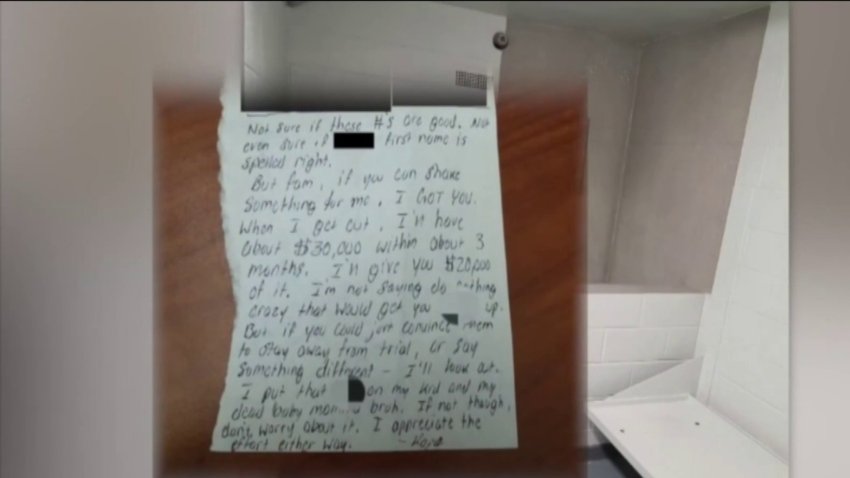 Not sure if these #s are good. Not
even sure if first name is
spelled right.
But fam, if you can shake
something for me, I GOT YOU.
When I get out, I'll have
about $30,000 within about 3
months. I'll give you $20,000
of it. I'm not saying do nothing
crazy that would get you up.
But if you could just convince them
to stay away from trial, or say
something different - I'll look out.
I put that on my kid and my
dead baby momma bruh. If not though,
don't worry about it. I appreciate the
effort either way.